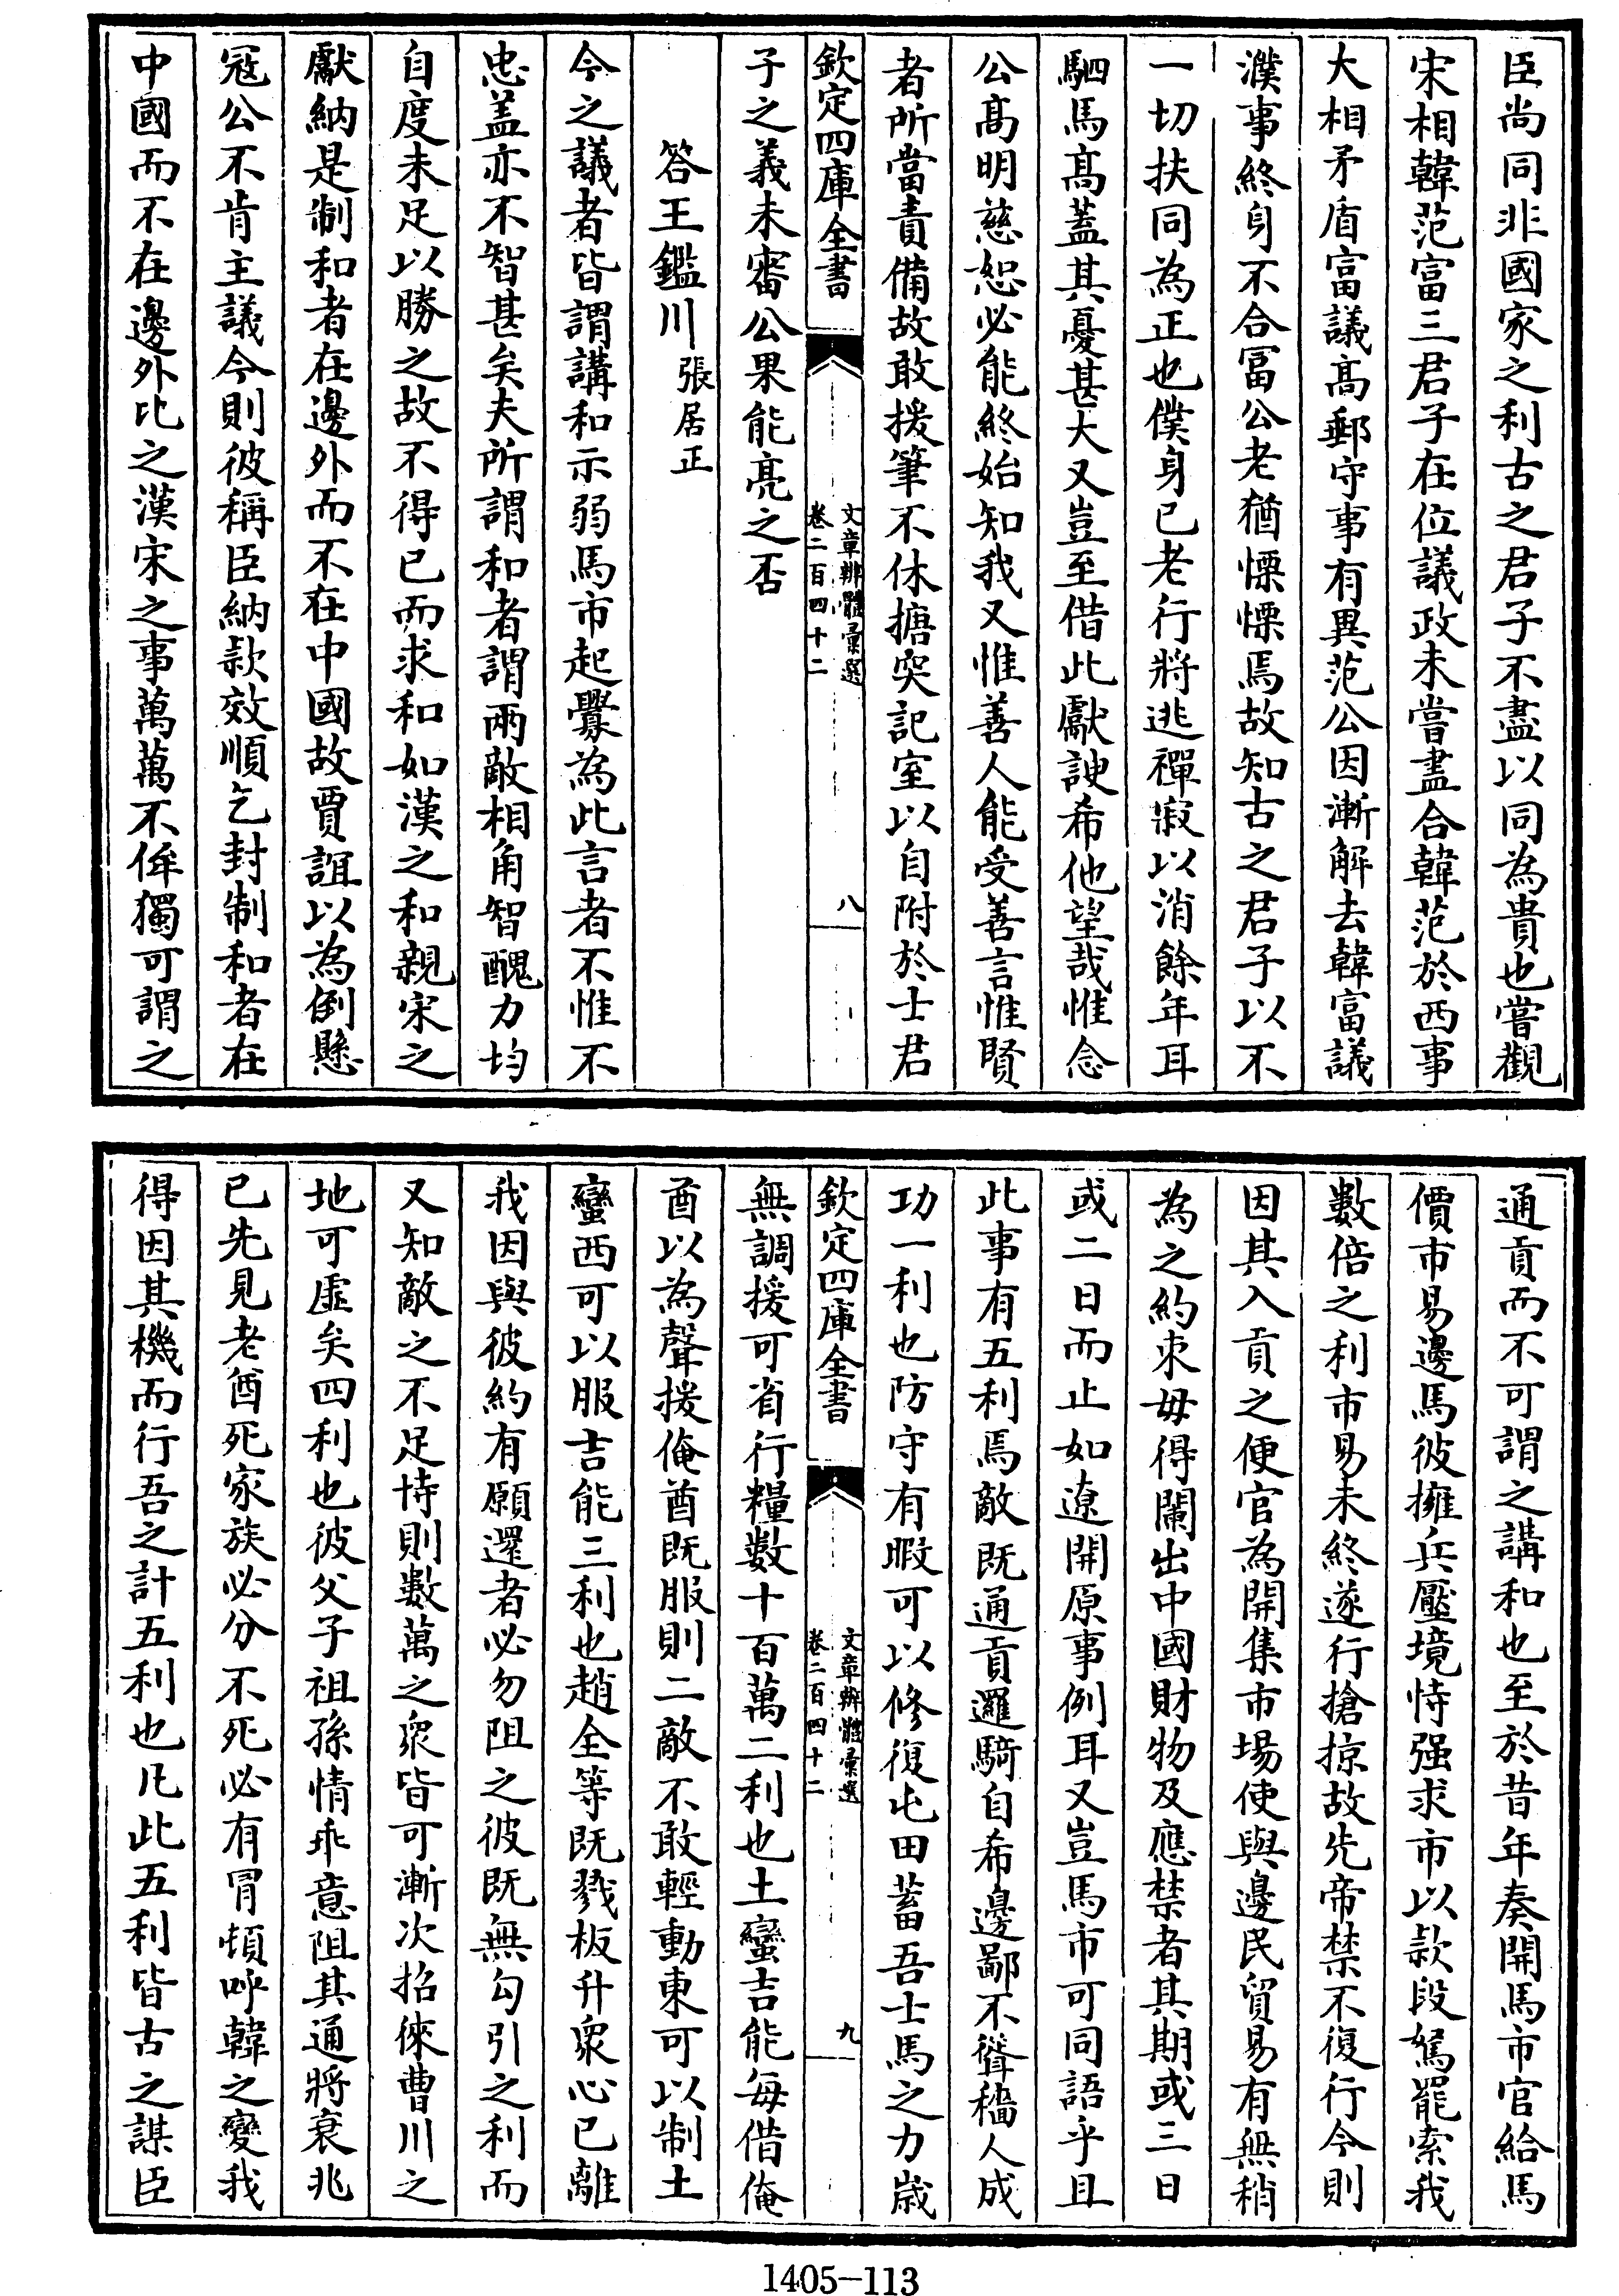 臣尚同非國家之利古之君子不盡以同為貴也嘗觀
宋相韓范富三君子在位議政未嘗盡合韓范於西事
大相矛盾富議高郵守事有異范公因漸解去韓富議
濮事終身不合冨公老猶慄慄焉故知古之君子以不
一切扶同為正也僕身已老行將逃禪寂以消餘年耳
駟馬髙蓋其憂甚大又豈至借此獻諛希他望哉惟念
公髙明慈恕必能終始知我又惟善人能受善言惟賢
者所當責備故敢援筆不休搪突記室以自附於士君
欽定四庫全書
文章辨體彚選
卷二百四十二
八
子之義未審公果能亮之否
答王鑑川 張居正
今之議者皆謂講和示弱馬市起釁為此言者不惟不
忠盖亦不智甚矣夫所謂和者謂兩敵相角智醜力均
自度未足以勝之故不得已而求和如漢之和親宋之
獻納是制和者在邊外而不在中國故賈誼以為倒懸
冦公不肯主議今則彼稱臣納款效順乞封制和者在
中國而不在邊外比之漢宋之事萬萬不侔獨可謂之
通貢而不可謂之講和也至於昔年奏開馬市官給馬
價市易邊馬彼擁兵壓境恃强求市以款段駑罷索我
數倍之利市易未終遂行搶掠故先帝禁不復行今則
因其入貢之便官為開集市場使與邊民貿易有無稍
為之約束毋得闌出中國財物及應禁者其期或三日
或二日而止如遼開原事例耳又豈馬市可同語乎且
此事有五利焉敵既通貢邏騎自希邊鄙不聳穡人成
功一利也防守有暇可以修復屯田蓄吾士馬之力歲
欽定四庫全書
文章辨體彚選
卷二百四十二
九
無調援可省行糧數十百萬二利也土蠻吉能每借俺
酋以為聲援俺酋既服則二敵不敢輕動東可以制土
蠻西可以服吉能三利也趙全等既戮板升衆心已離
我因與彼約有願還者必勿阻之彼既無勾引之利而
又知敵之不足恃則數萬之衆皆可漸次招徠曹川之
地可虛矣四利也彼父子祖孫情乖意阻其通將衰兆
已先見老酋死家族必分不死必有冒頓呼韓之變我
得因其機而行吾之計五利也凡此五利皆古之謀臣
1405-113